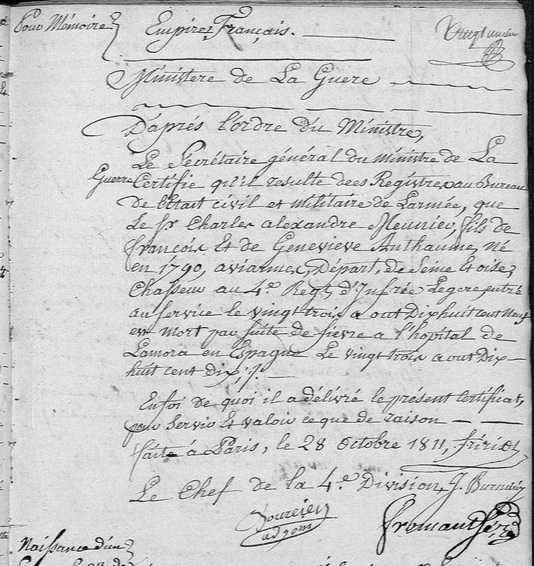 Pour Mémoire
Empire Français.
Ministere de La Guere
D'aprés l'ordre du Ministre,
Le Secrétaire général du ministre de La
Guerre Certifie qu'il resulte dees Registres au Bureau
de L'Etrait civil et militaire de L'armée, que
Le Sr Charles alexandre Meunier, fils de
françois Et de Genevieve Anthaume, né
en 1790, a viarmes, Départ. de Seine Et oise,
Chasseur au 4e Regt d'Infrie Legere, entré
au service le vingt trois a out Dix huit cent Neuf
est mort par suite de fievre a l'hopital de
Zamora en Espagne Le vingt trois a out Dix-
huit cent dix ./.
En foi de quoi il a délivré le présent certificat,
pour servir Et valoir ce que de raison
faite à Paris, le 28 Octobre 1811,
Le Chef de la 4e Division, J.
adjoint
fromant
Naissance d'un